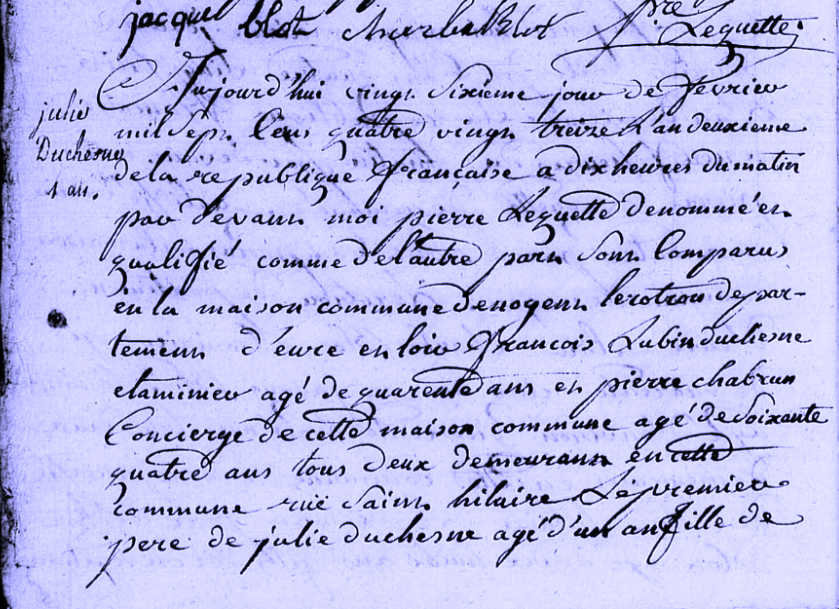 jacque blot charles Blot pre Lequette
julie
Duchesne
1 an.
Aujourd'hui vingt sixieme jour de fevrier
mil sept cens quatre vingt treize L'an deuxieme
de la republique francaise a dix heures du matin
par devant moi pierre Lequette denommé et
qualifié comme de l'autre part sont comparus
en la maison commune de nogent lerotrou depar-
tement d'eure en loir francois Lubin duchesne
etaminier agé de quarente ans et pierre chabrun
concierge de cette maison commune agé de soixante
quatre ans tous deux demeurant en cette
commune rue saint hilaire Le premier
pere de julie duchesne agé d'un an fille de